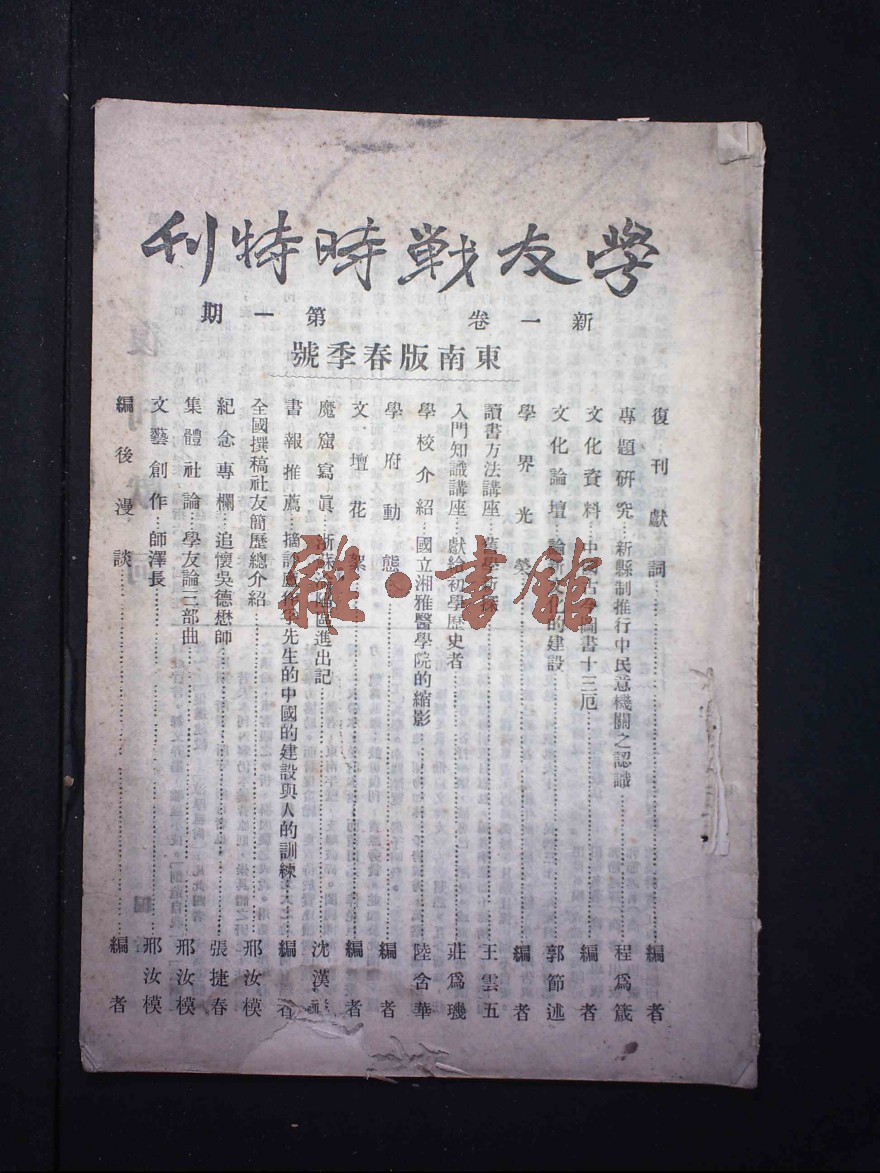 學友戰時特刊
新一卷 第一期
東南版春季號
復刊獻詞……編者
專題研究…新縣制推行中民意機關之認識……程為箴
文化資料…中國古今圖書十三厄……編者
文化論壇…論新文化的建設……郭節述
學界光榮……編者
讀書方法講座…舊學新探……王雲五
入門知識講座…獻給初學歷史者……莊為璣
學校介紹…國立湘雅醫學院的縮影……陸含華
學府動態……編者
文壇花絮……編者
魔窟寫眞…浙蘇淪陷區進出記……沈漢
書報推薦…摘 盧作孚先生的中國的建設與人的訓練……編者
全國撰稿社友簡歷總介紹……邢汝模
紀念專欄…追懷吳德懋師……張捷春
集體社論…學友論三部曲……邢汝模
文藝創作…師澤長……邢汝模
編後漫談……編者
雜·書館